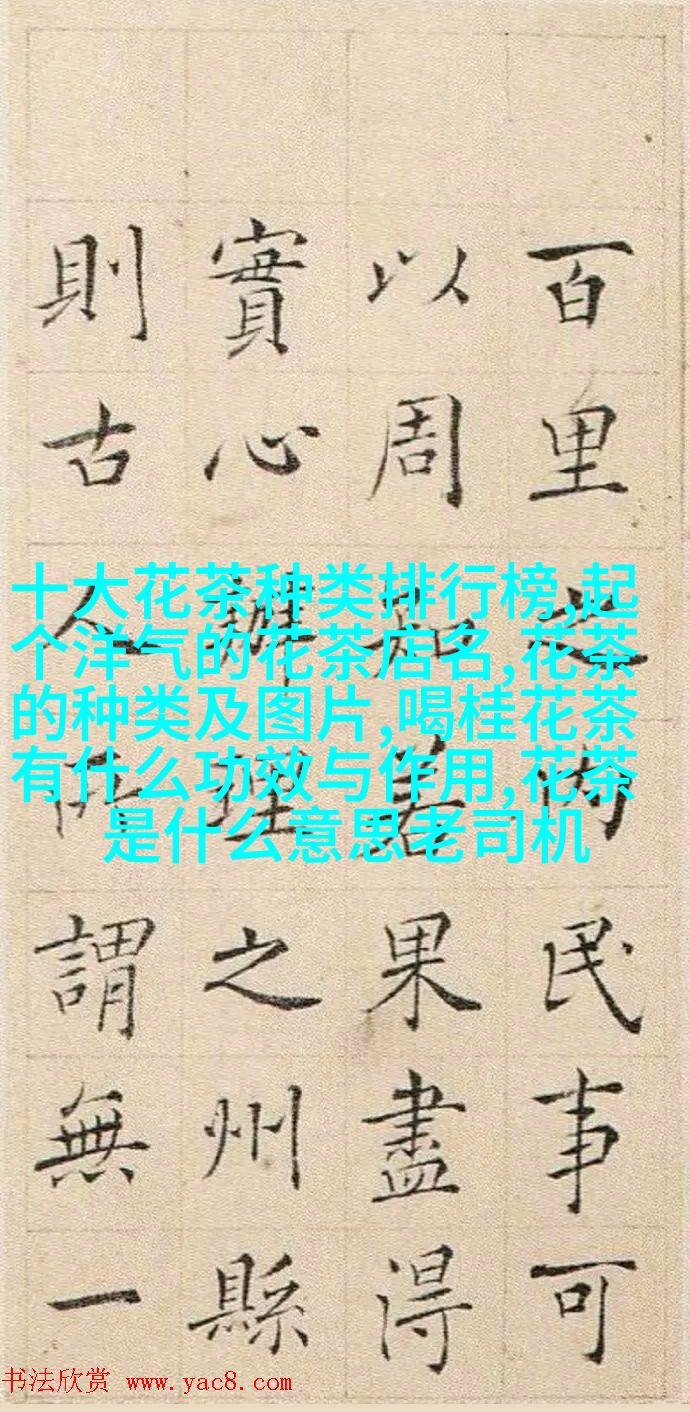 百里之内民事可
以周知若果盡得
實心辦理之州縣
則古人所謂無一
十大花茶种类排行榜,起
个洋气的花茶店名,花茶
的种类及图片,喝桂花茶
有什么功效与作用,花茶
是什么意思老司机
书法欣赏 www.yac8.com